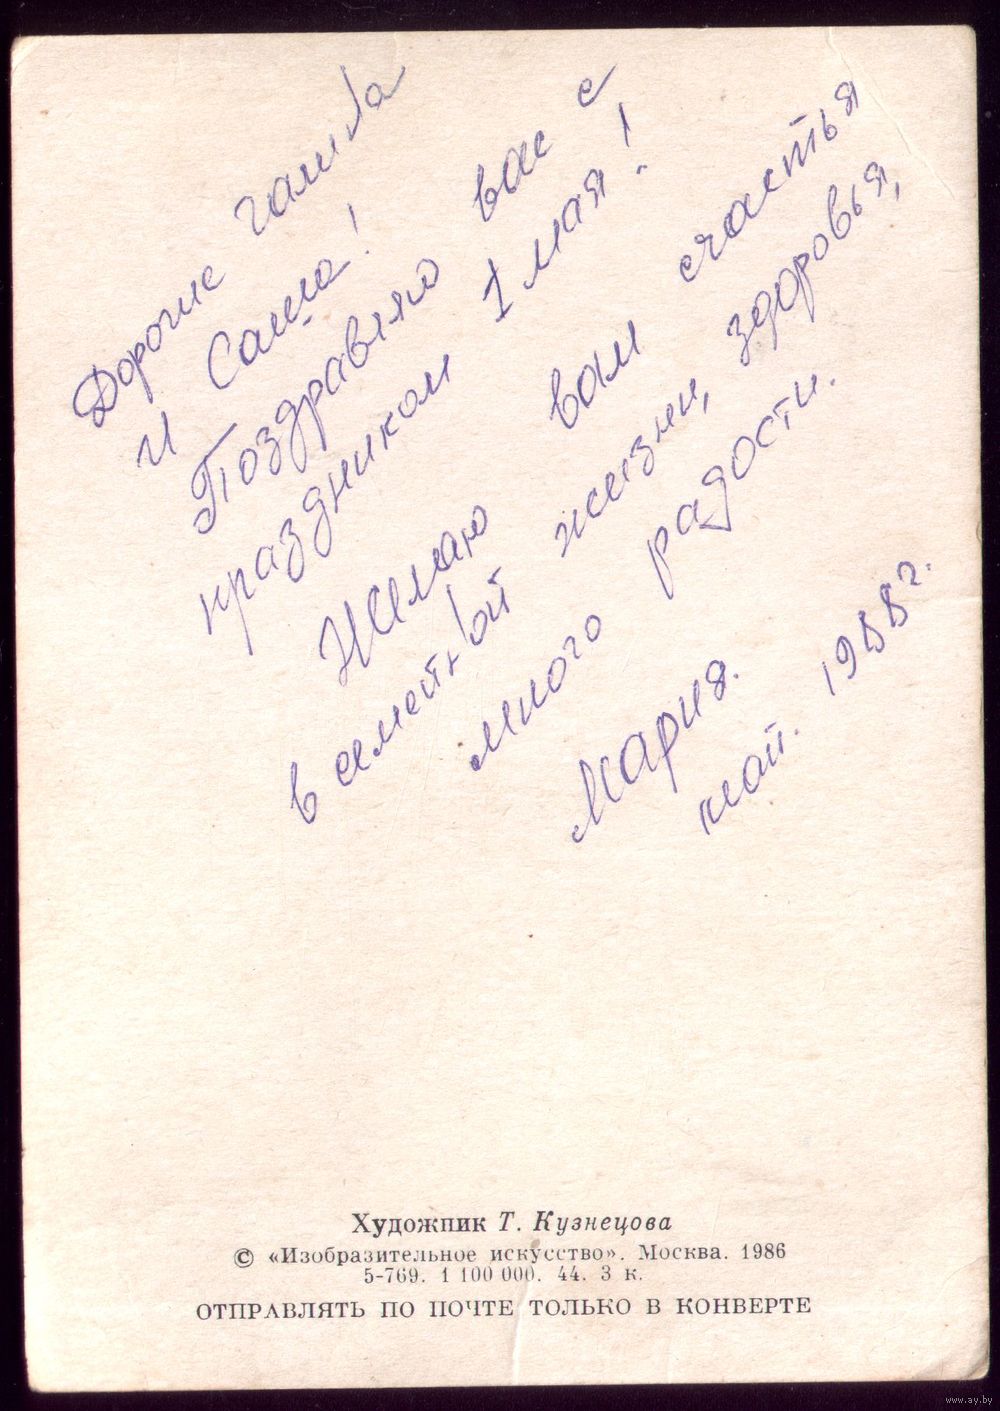 Дорогие Галина
и Саша!
Поздравляю вас с
праздником 1 мая!
Желаю вам счастья
в семейной жизни, здоровья,
много радости.
Мария.
май. 1988г.
Художник Т. Кузнецова
© «Изобразительное искусство». Москва. 1986
5-769. 1 100 000. 44. 3 к.
ОТПРАВЛЯТЬ ПО ПОЧТЕ ТОЛЬКО В КОНВЕРТЕ
www.ay.by